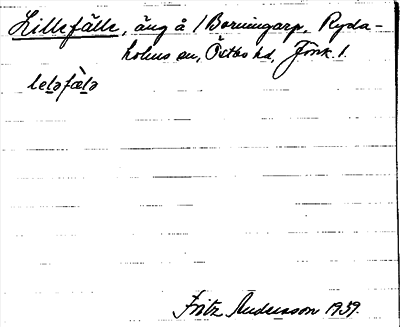 Lillefälle, äng å /Borningarp, Ryda-
holms sn, Östbo hd, Jönk. l.
leləfælə
Fritz Andersson 1939.